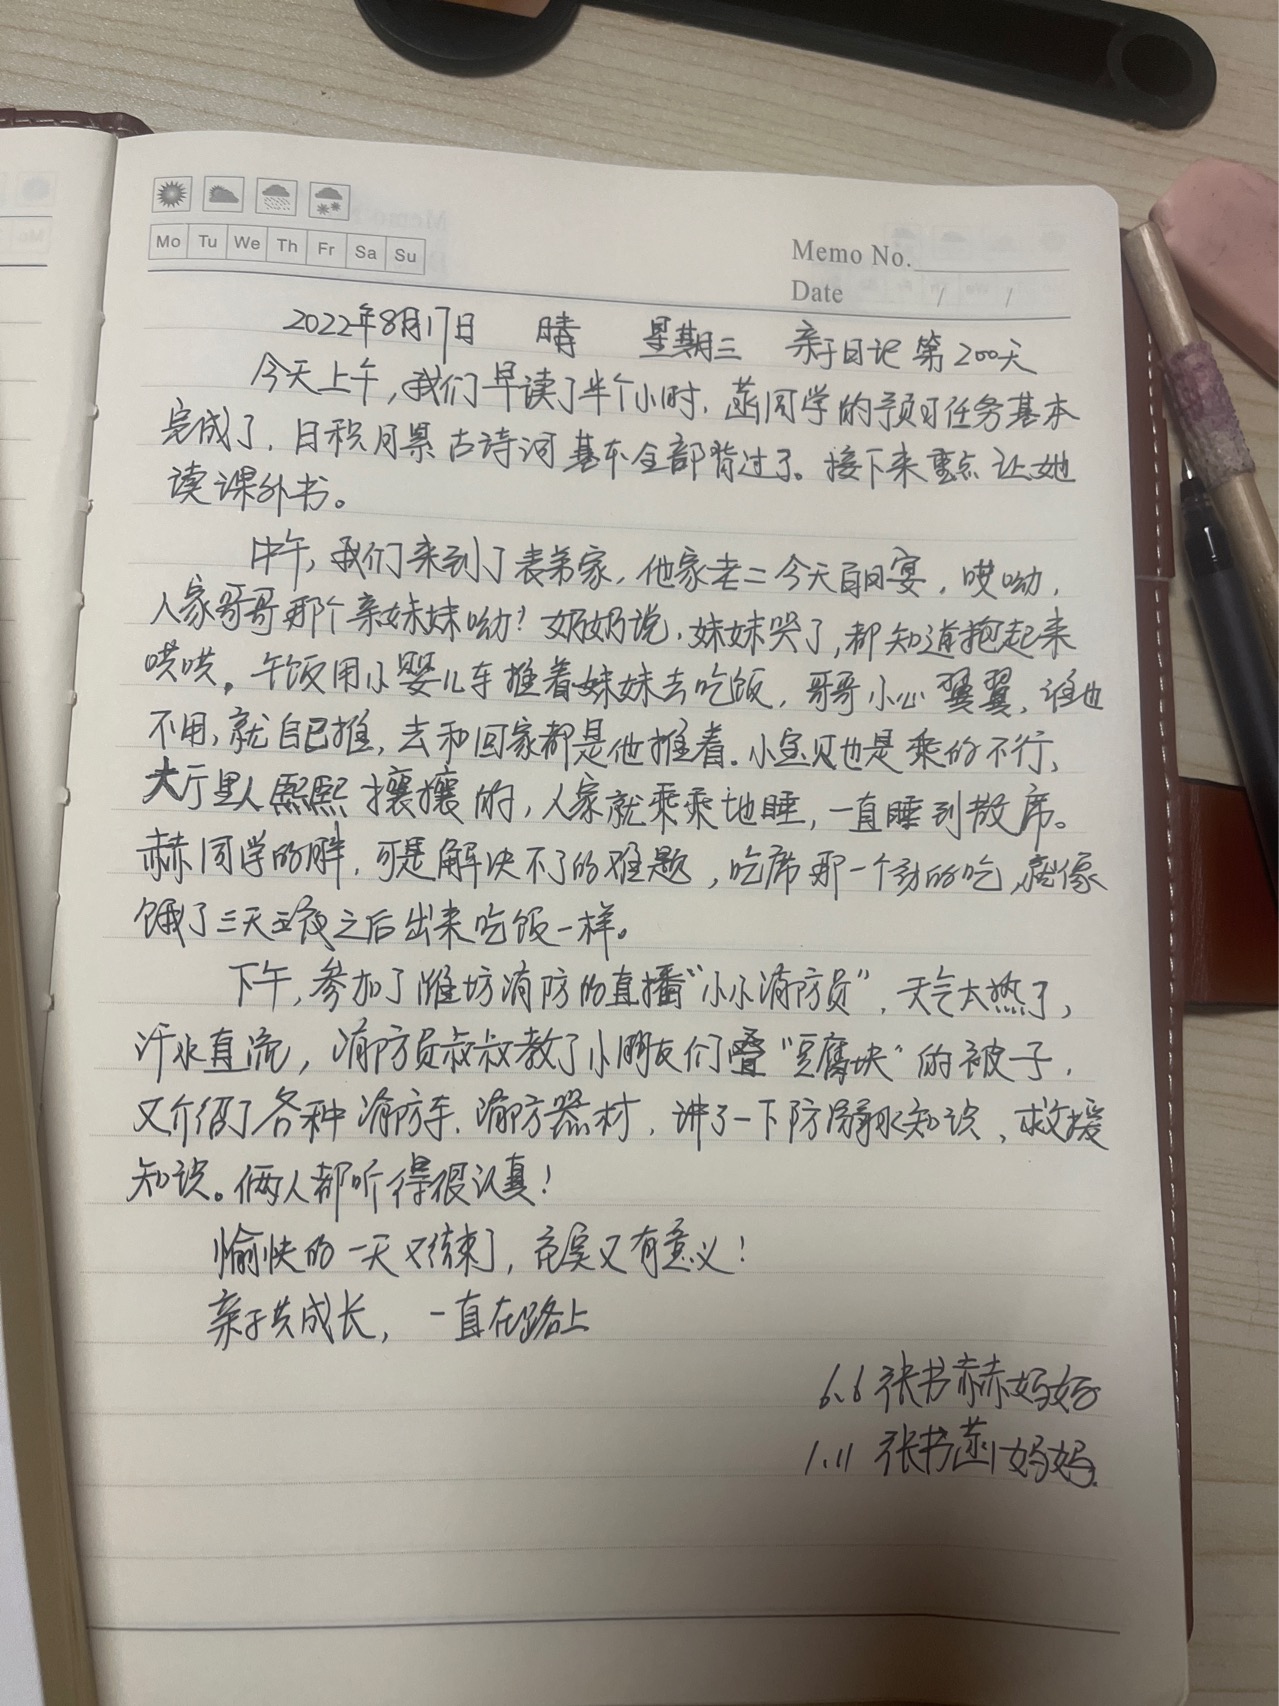 Mo Tu We Th Fr Sa Su
Memo No.
Date / /
2022年8月17日 晴 星期三 亲子日记第200天
今天上午,我们早读了半个小时,菡同学的预习任务基本
完成了,日积月累古诗词基本全部背过了。接下来重点让她
读课外书。
中午,我们来到了表弟家,他家老二今天百日宴,哎呦,
人家哥哥那个亲妹妹呦?奶奶说,妹妹哭了,都知道抱起来
哄哄。午饭用小婴儿车推着妹妹去吃饭,哥哥小心翼翼,谁也
不用,就自己推,去和回家都是他推着。小宝贝也是乖的不行,
大厅里人熙熙攘攘的,人家就乖乖地睡,一直睡到散席。
赫同学的胖,可是解决不了的难题,吃席那一个劲的吃,就像
饿了三天三夜之后出来吃饭一样。
下午,参加了潍坊消防的直播“小小消防员”,天气太热了,
汗水直流,消防员叔叔教了小朋友们叠“豆腐块”的被子,
又介绍了各种消防车,消防器材,讲了一下防溺水知识,救援
知识。俩人都听得很认真!
愉快的一天又结束了,充实又有意义!
亲子共成长,一直在路上
6.6 张书赫妈妈
1.11 张书菡妈妈.